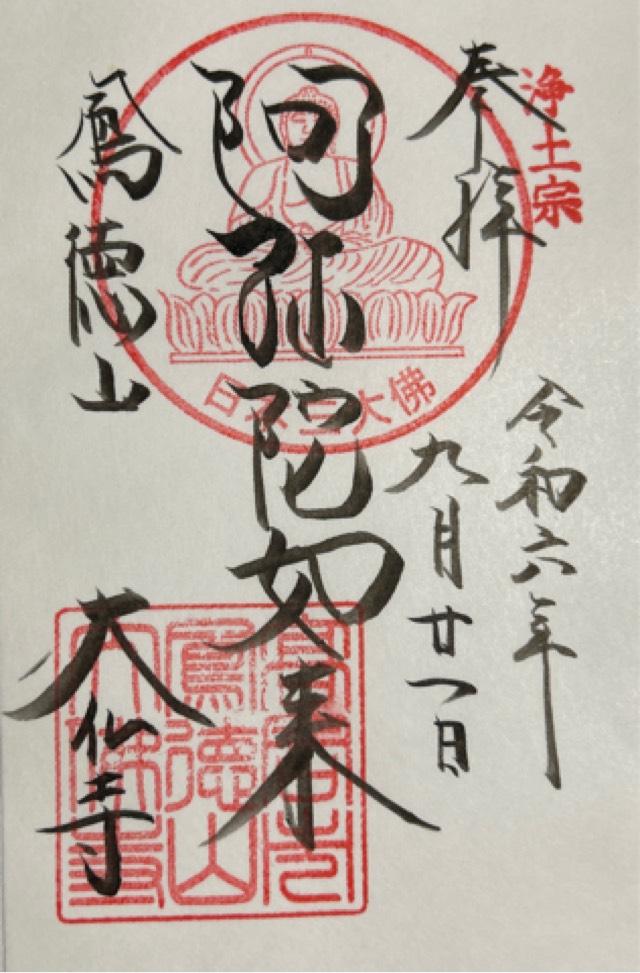 浄土宗
奉拝
令和六年
九月廿一日
阿弥陀如来
日本三大佛
鳳徳山
大仏寺
鳳徳山
大佛寺